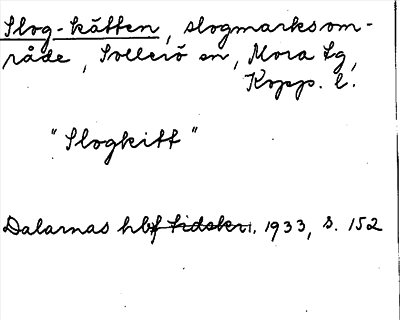 Slog-kätten, slogmarksom-
råde, Sollerö sn, Mora tg,
Kopp. l.
"Slogkitt"
Dalarnas hbf tidskr. 1933, s. 152